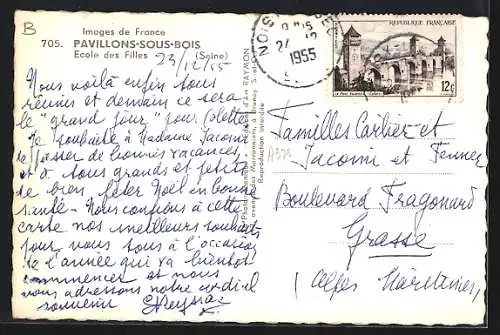 B
Images de France
705. PAVILLONS-SOUS-BOIS
Ecole des Filles (Seine)
23/12/55
Nous voilà enfin tous
réunis et demain ce sera
le "grand jour" pour Colette
Je souhaite à Madame Jacomi
de passer de bonnes vacances
et à vous grands et petits
de bien fêter Noël en bonne
santé - Nous confions à cette
carte nos meilleurs souhaits
pour vous tous à l'occasion
de l'année qui va bientôt
commencer et nous
vous adressons notre cordial
souvenir
RAYMON
Reproduction interdite
24 12
1955
REPUBLIQUE FRANÇAISE
12F
Familles Carlier et
Jacomi et Fenner
Boulevard Fragonard
Grasse
(Alpes Maritimes)